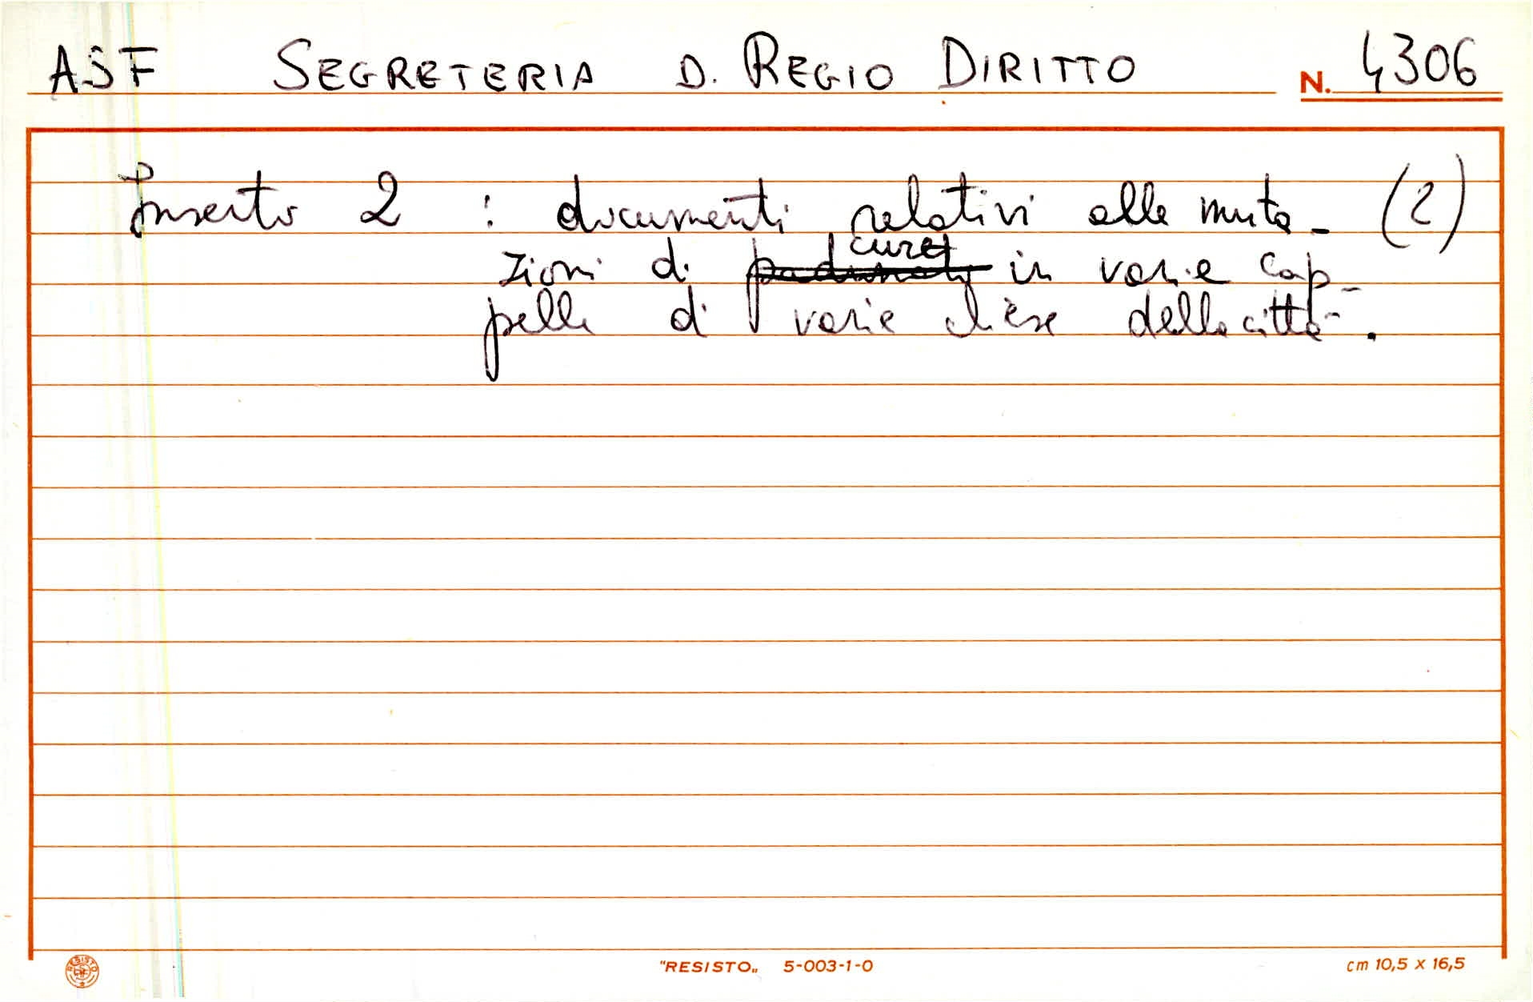 ASF SEGRETERIA D. REGIO DIRITTO N. 4306
Inserto 2 : documenti relativi alle muta- (2)
zioni di curati in varie cap-
pelle di varie chiese della città.
"RESISTO„ 5-003-1-0 cm 10,5 x 16,5